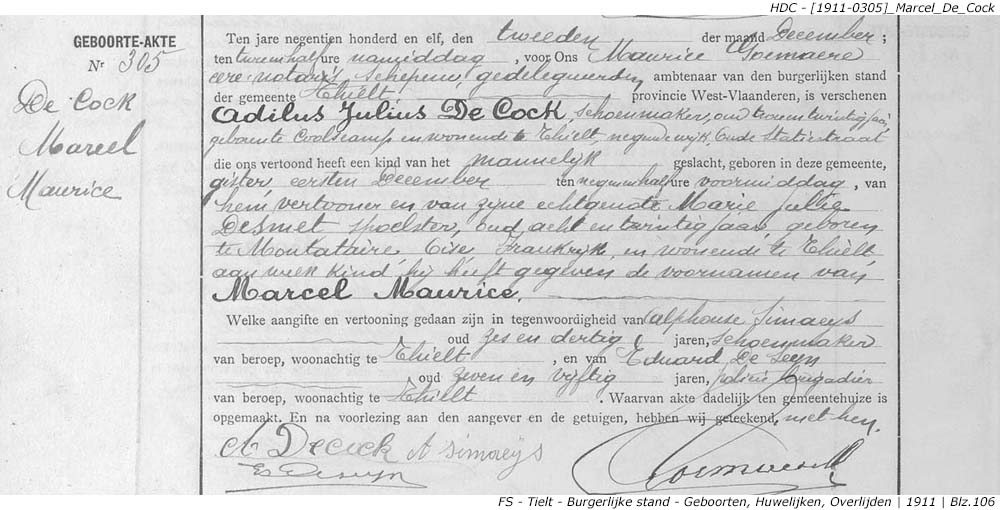 HDC - [1911-0305]_Marcel_De_Cock
GEBOORTE-AKTE
Nr 305
De Cock
Marcel
Maurice
Ten jare negentien honderd en elf, den tweeden der maand December ;
ten twee half ure namiddag , voor Ons Maurice
eere notaris, Schepen, gedelegueerden ambtenaar van den burgerlijken stand
der gemeente Thielt provincie West-Vlaanderen, is verschenen
Odilus Julius De Cock, schoenmaker, oud
geboren te Coolscamp en wonende te Thielt, Oude Statiestraat
die ons vertoond heeft een kind van het mannelijk geslacht, geboren in deze gemeente,
gister eersten December ten negen half ure voormiddag , van
hem vertooner en van zijne echtgenote Marie Julie
Desmet spoelster, oud acht en twintig jaar, geboren
te Montataire, Oise, Frankrijk, en wonende te Thielt
aan welk kind hij heeft gegeven de voornamen van
Marcel Maurice.
Welke aangifte en vertooning gedaan zijn in tegenwoordigheid van Alphonse Simaeys
oud zes en dertig jaren, schoenmaker
van beroep, woonachtig te Thielt , en van Eduard De Seyn
oud zeven en vijftig jaren, policie brigadier
van beroep, woonachtig te Thielt . Waarvan akte dadelijk ten gemeentehuize is
opgemaakt. En na voorlezing aan den aangever en de getuigen, hebben wij geteekend, met hen.
O Decock A Simaeys
FS - Tielt - Burgerlijke stand - Geboorten, Huwelijken, Overlijden | 1911 | Blz.106